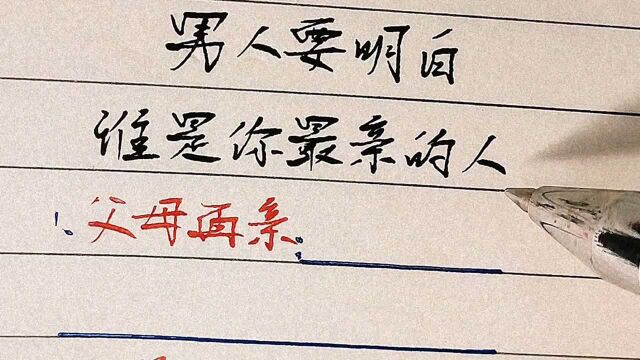 男人要明白
谁是你最亲的人
1.父母再亲